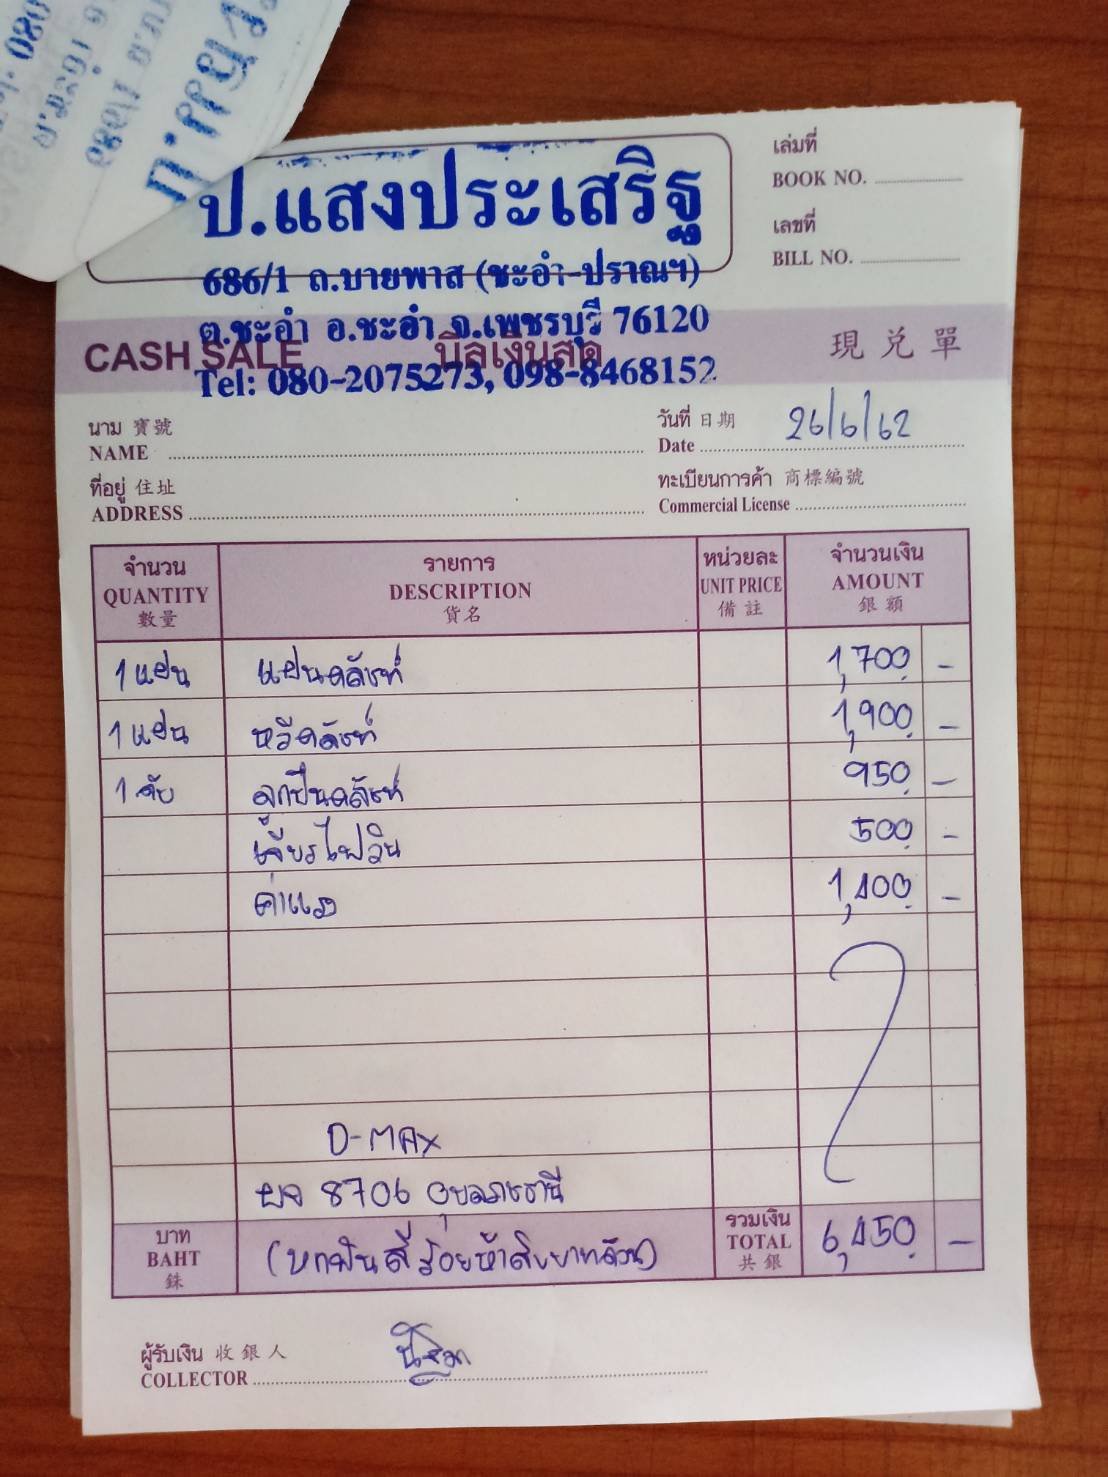 ป.แสงประเสริฐ
686/1 ถ.บายพาส (ชะอำ-ปราณฯ)
ต.ชะอำ อ.ชะอำ จ.เพชรบุรี 76120
Tel: 080-2075273, 098-8468152
เล่มที่
BOOK NO.
เลขที่
BILL NO.
CASH SALE บิลเงินสด 現兌單
นาม 寶號
NAME
วันที่ 日期 26/6/62
Date
ที่อยู่ 住址
ADDRESS
ทะเบียนการค้า 商標編號
Commercial License
จำนวน รายการ หน่วยละ จำนวนเงิน
QUANTITY DESCRIPTION UNIT PRICE AMOUNT
數量 貨名 備註 銀額
1 แผ่น แผ่นคลัชท์ 1,700 -
1 แผ่น หวีคลัชท์ 1,900 -
1 ตับ ลูกปืนคลัชท์ 950 -
เจียรไฟวิน 500 -
ค่าแรง 1,400 -
D-MAX
ผจ 8706 อุบลราชธานี
บาท
BAHT
銖
(หกพันสี่ร้อยห้าสิบบาทถ้วน)
รวมเงิน
TOTAL
共銀
6,450 -
ผู้รับเงิน 收銀人
COLLECTOR